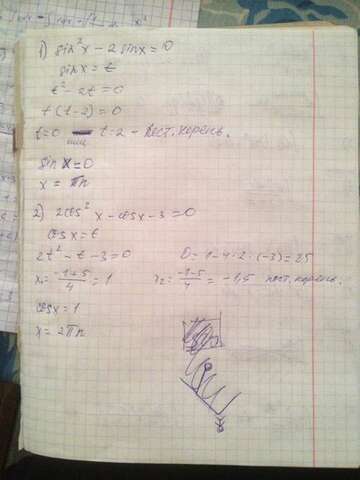 1) sin² x - 2 sin x = 0
sin x = t
t² - 2t = 0
t(t-2) = 0
t=0 t-2 - пост. корень.
sin x = 0
x = πn
2) 2cos² x - cos x - 3 = 0
cos x = t
2t² - t - 3 = 0 D = 1 - 4·2·(-3) = 25
x₁ = (-1+5)/4 = 1 x₂ = (-1-5)/4 = -1,5 пост. корень.
cos x = 1
x = 2πn